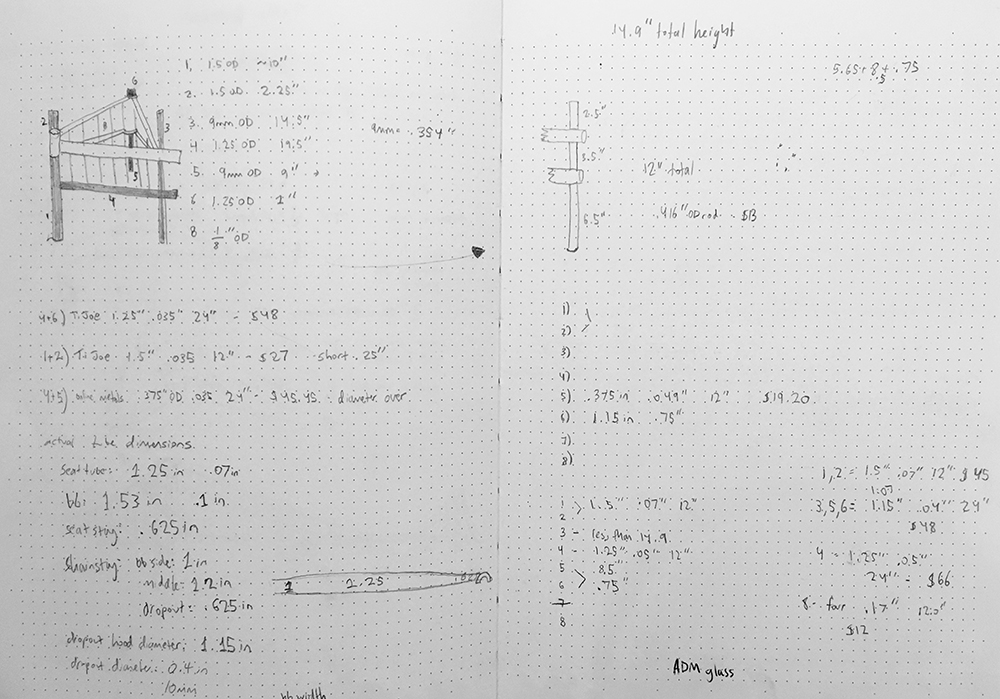 1. 1.5 OD ~10"
2. 1.5 OD 2.25"
3. 9mm OD 14.5"
4 1.25 OD 19.5"
5. 9mm OD 9"
6 1.25 OD 1"
8 1/8" OD
9mm = .354"
6
2
3
8
5
4
1
4+6) Ti Joe 1.25" .035" 24" - $48
1+2) Ti Joe 1.5" .035 12" - $27 short .25"
metals .375" OD .035 24" - $45.45 diameter over
actual bike dimensions
seat tube: 1.25 in .07in
bb: 1.53 in .1 in
.625 in
bb side: 1 in
middle: 1.2 in
dropout: .625 in
1 1.25
dropout hood diameter: 1.15 in
dropout diameter: 0.4 in
10mm
bb width
14.9" total height
5.65 + 8 + .75
.5
2.5"
3.5"
6.5"
12" total
.416" OD rod $13
1)
2)
3)
4)
5) .375in .049" 12" $19.20
6) 1.15 in .75"
7)
8)
1 1.5" .07" 12"
2
3 - less than 14.9
4 - 1.25" .05" 12"
5 8.5"
6 .75"
7
8
1,2 = 1.5" .07" 12" $45
1.07
3,5,6 = 1.15" .04" 24"
$48
4 = 1.25" .05"
24" = $66
8 - four .17"
$12
ADM glass